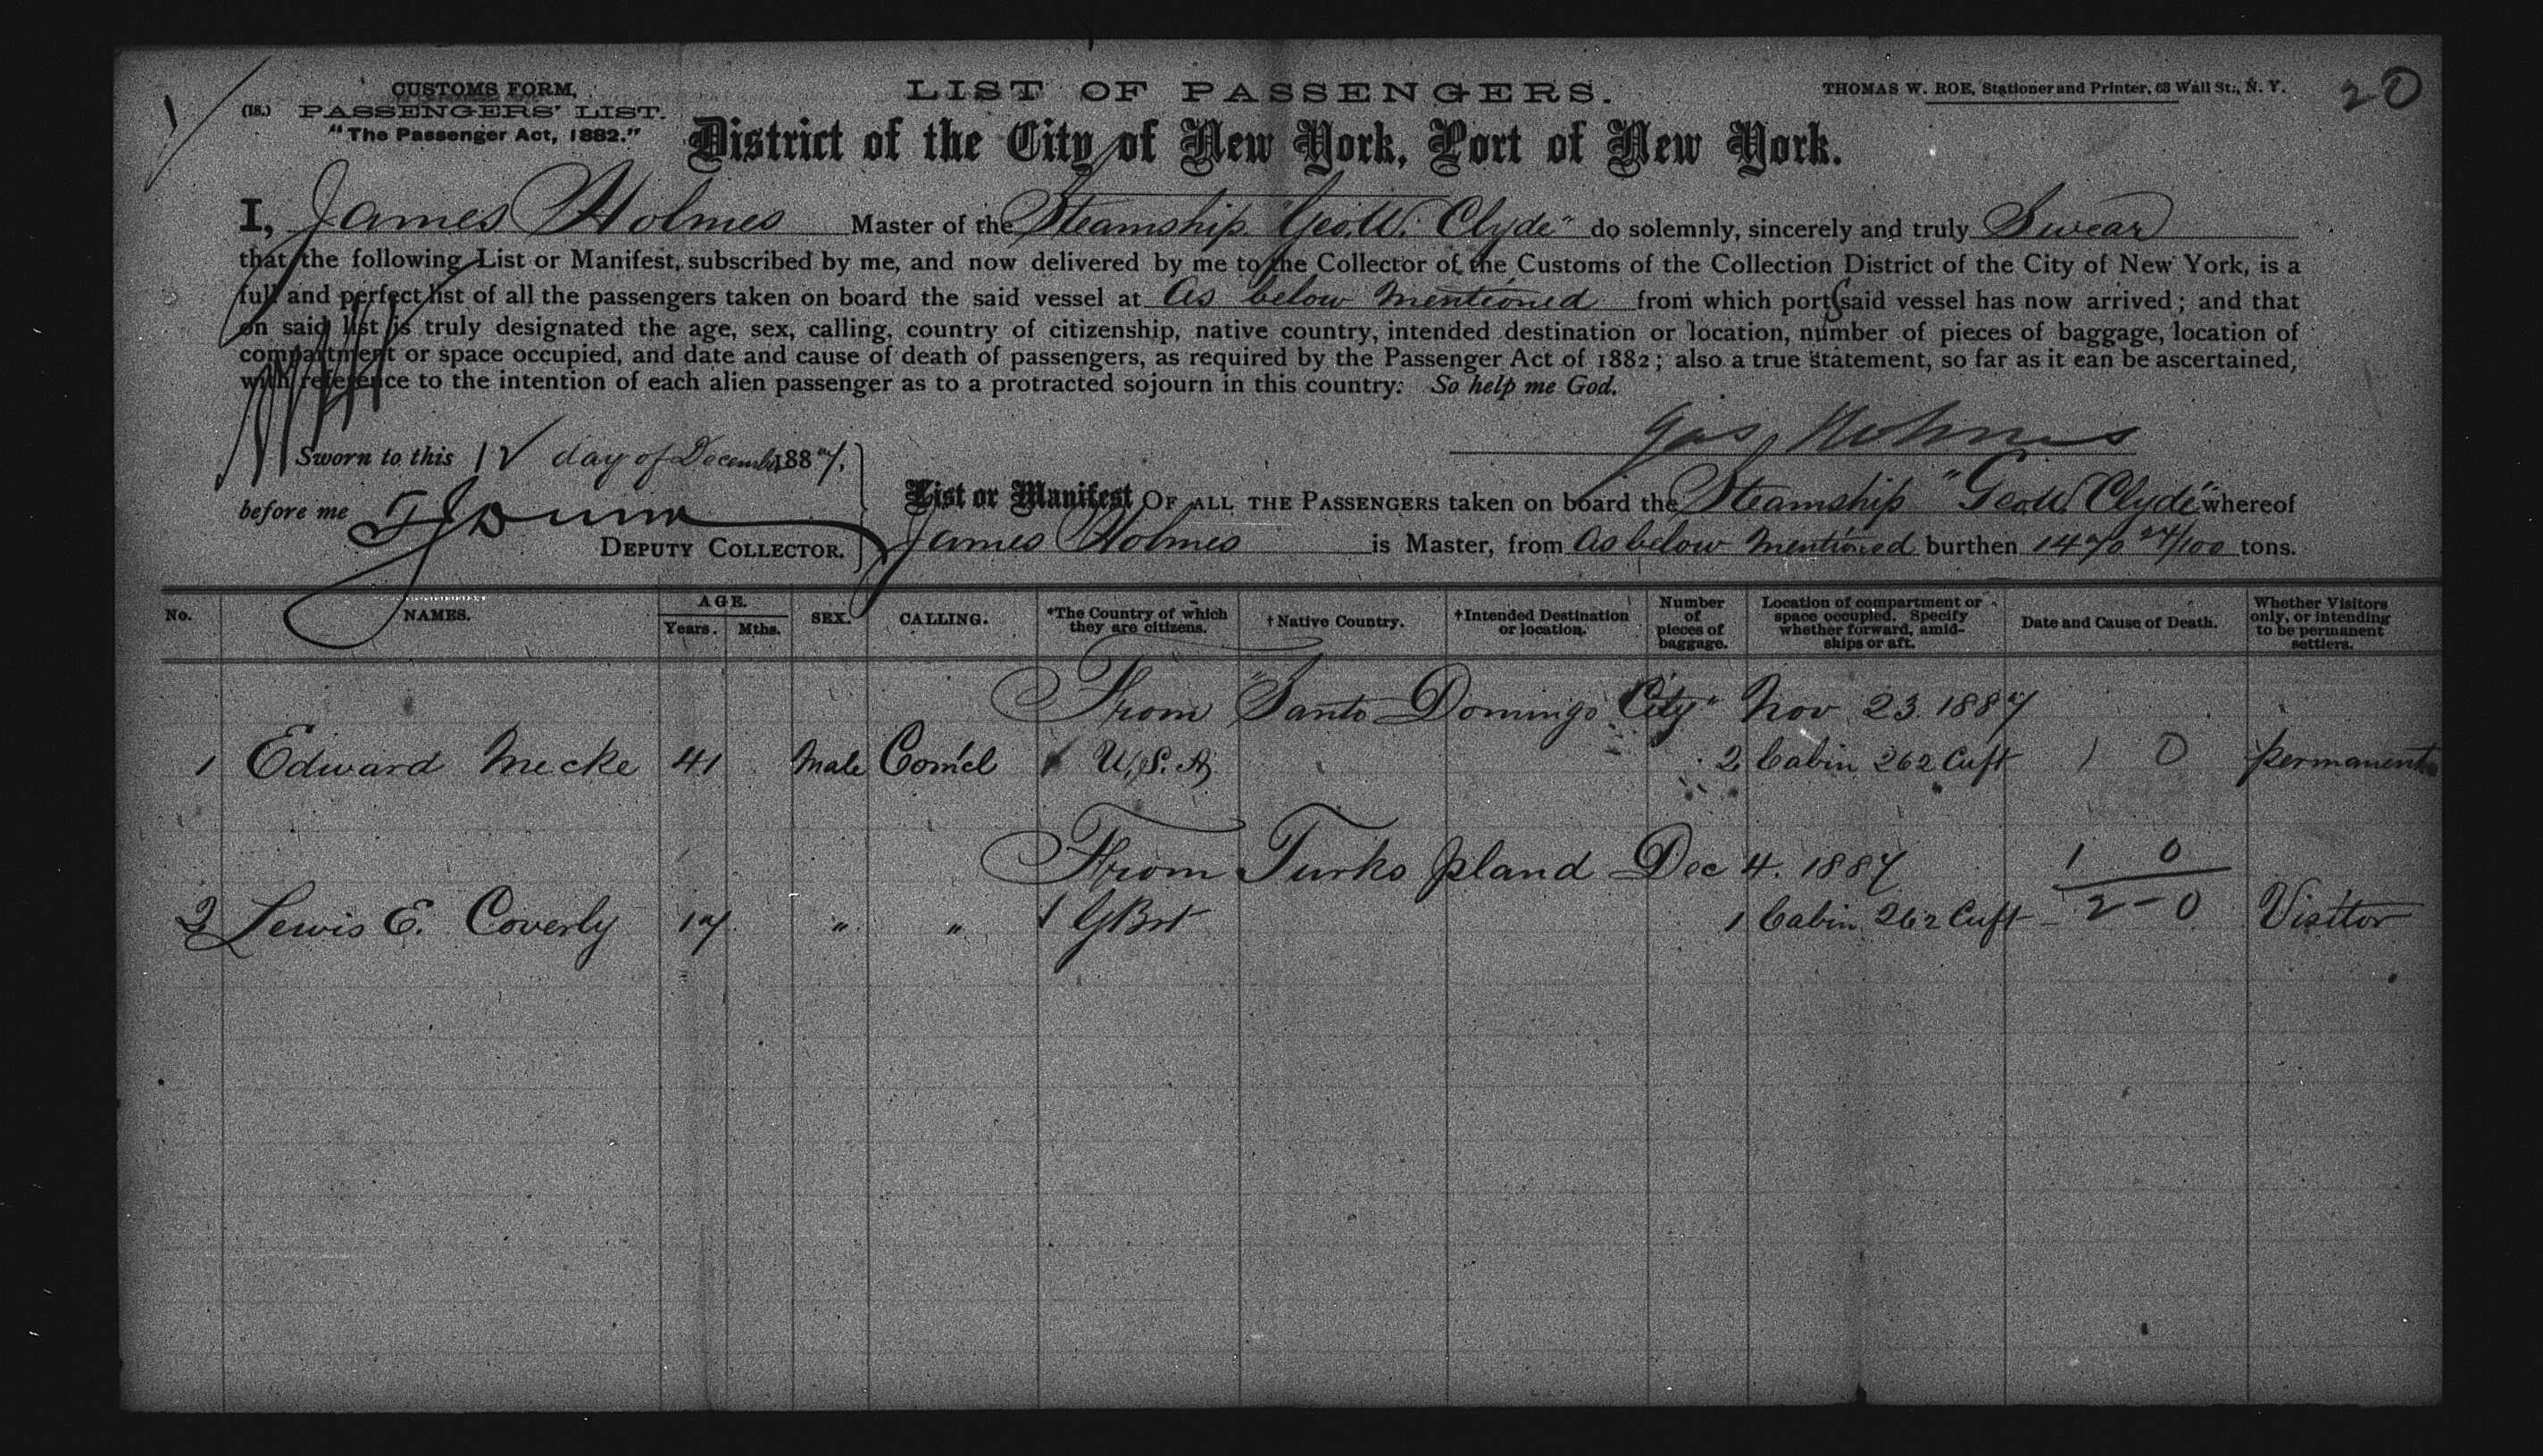 CUSTOMS FORM.
(18.) PASSENGERS' LIST.
"The Passenger Act, 1882."
LIST OF PASSENGERS.
THOMAS W. ROE, Stationer and Printer, 63 Wall St., N. Y.
20
District of the City of New York, Port of New York.
I, James Holmes Master of the Steamship "Geo. W. Clyde" do solemnly, sincerely and truly Swear
that the following List or Manifest, subscribed by me, and now delivered by me to the Collector of the Customs of the Collection District of the City of New York, is a
full and perfect list of all the passengers taken on board the said vessel at As below mentioned from which ports said vessel has now arrived; and that
on said list is truly designated the age, sex, calling, country of citizenship, native country, intended destination or location, number of pieces of baggage, location of
compartment or space occupied, and date and cause of death of passengers, as required by the Passenger Act of 1882; also a true statement, so far as it can be ascertained,
with reference to the intention of each alien passenger as to a protracted sojourn in this country. So help me God.
Jas Holmes
Sworn to this 12 day of December 1887,
before me
DEPUTY COLLECTOR.
List or Manifest OF ALL THE PASSENGERS taken on board the Steamship "Geo W. Clyde" whereof
James Holmes is Master, from As below mentioned burthen 1470 27/100 tons.
No. NAMES. AGE. Years. Mths. SEX. CALLING. *The Country of which they are citizens. †Native Country. †Intended Destination or location. Number of pieces of baggage. Location of compartment or space occupied. Specify whether forward, amidships or aft. Date and Cause of Death. Whether Visitors only, or intending to be permanent settlers.
From "Santo Domingo City" Nov 23. 1887
1 Edward Mecke 41 Male Com'cl 1 U.S.A. 2 Cabin 262 Cuft 1 0 permanent
From Turks Island Dec 4. 1887 1 0
2 Lewis E. Coverly 17 " " 1 GBrt 1 Cabin 262 Cuft 2-0 Visitor